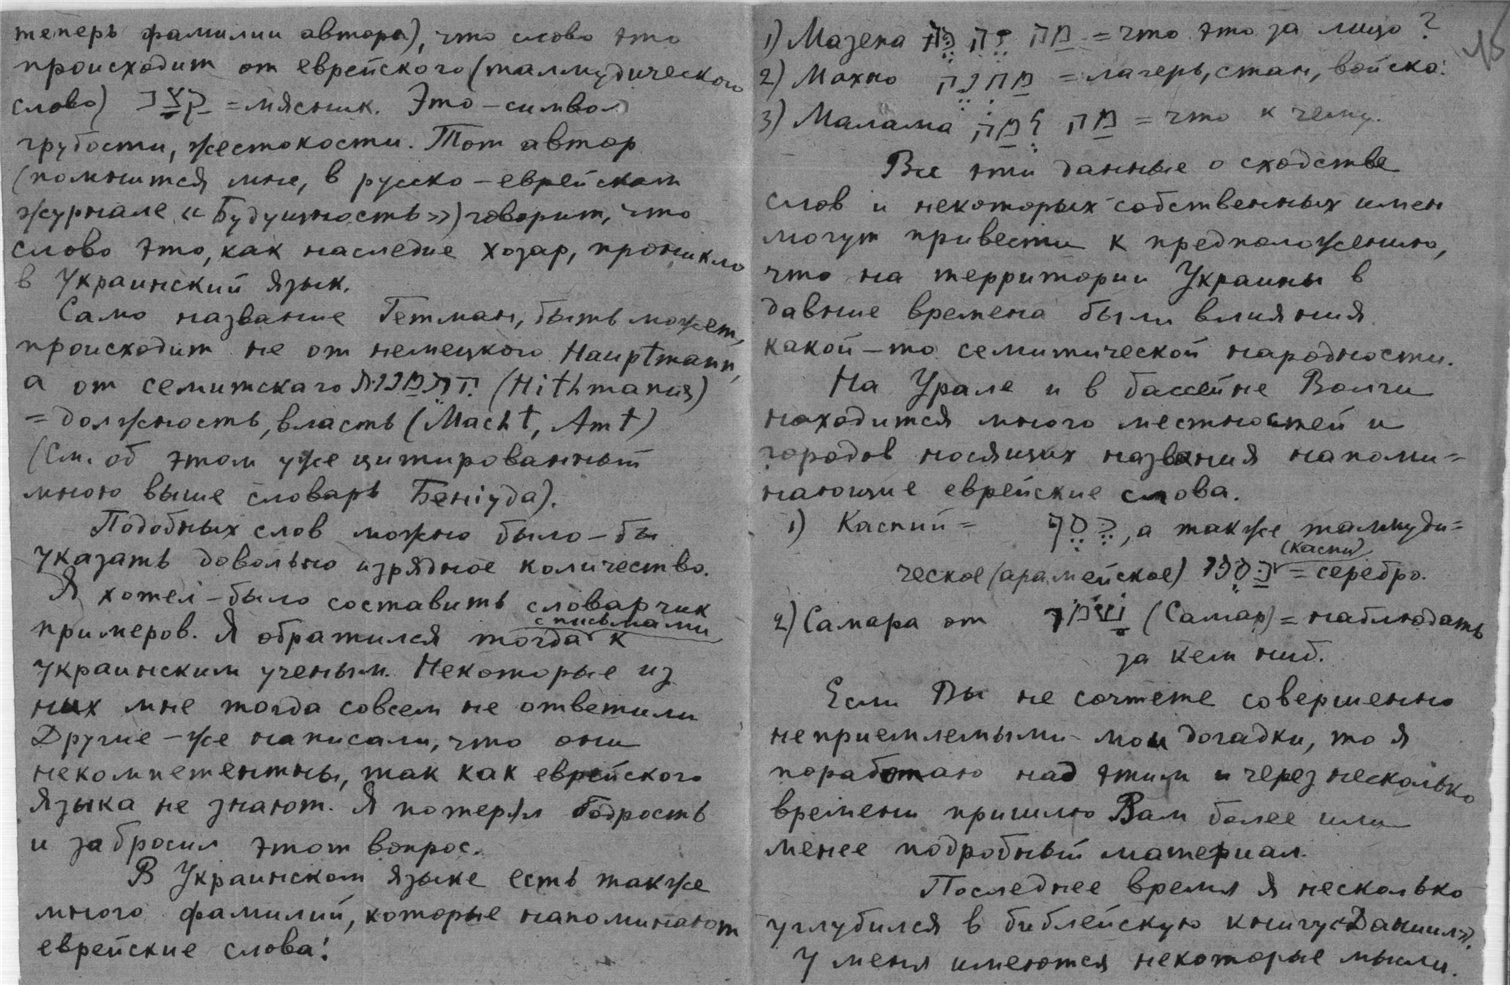 теперь фамилии автора), что слово это
происходит от еврейского (талмудического
слово) קַצָּב = мясник. Это – символ
грубости, жестокости. Тот автор
(помнится мне, в русско – еврейском
журнале «Будущность») говорит, что
слово это, как наследие хозар, проникло
в Украинский язык.
Само название Гетман, быть может,
происходит не от немецкого Hauptmann,
а от семитскаго הִתְמַנוּת (Hithmanus)
= должность, власть (Macht, Amt)
(См. об этом уже цитированный
мною выше словарь Бениуда).
Подобных слов можно было – бы
указать довольно изрядное количество.
Я хотел – было составить словарчик
примеров. Я обратился тогда с письмами к
украинским ученым. Некоторые из
них мне тогда совсем не ответили
Другие – же написали, что они
некомпетентны, так как еврейского
языка не знают. Я потерял бодрость
и забросил этот вопрос.
В Украинском языке есть также
много фамилий, которые напоминают
еврейские слова:
1) Мазепа מַה זֶּה פֶּה = что это за лицо?
2) Махно מַחֲנֶה = лагерь, стан, войско.
3) Малама מַה לָּמָּה = что к чему.
Все эти данные о сходстве
слов и некоторых собственных имен
могут привести к предположению,
что на территории Украины в
давние времена были влияния
какой – то семитической народности.
На Урале и в бассейне Волги
находится много местностей и
городов носящих названия напоми=
нающие еврейские слова.
1) Каспий = כֶּסֶף, а также талмуди=
ческое (арамейское) כַּסְפִּי (каспи) = серебро.
2) Самара от שָׁמַר (Самар) = наблюдать
за кем ниб.
Если Вы не сочтете совершенно
неприемлемыми мои догадки, то я
поработаю над этим и через несколько
времени пришлю Вам более или
менее подробный материал.
Последнее время я несколько
углубился в библейскую книгу «Даниил».
У меня имеются некоторые мысли.